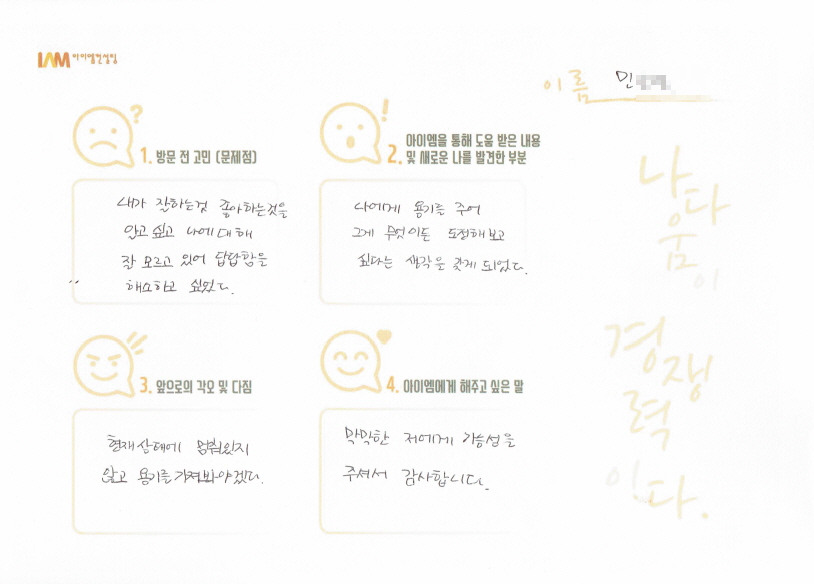 IAM 아이엠컨설팅
이름 민
1. 방문 전 고민 (문제점)
내가 잘하는것 좋아하는것을
알고 싶고 나에 대해
잘 모르고 있어 답답함을
해소하고 싶었다.
2. 아이엠을 통해 도움 받은 내용
및 새로운 나를 발견한 부분
나에게 용기를 주어
그게 무엇이든 도전해보고
싶다는 생각을 갖게 되었다.
3. 앞으로의 각오 및 다짐
현재상태에 멈춰있지
않고 용기를 가져봐야겠다.
4. 아이엠에게 해주고 싶은 말
막막한 저에게 가능성을
주셔서 감사합니다.
나다움이
경쟁력이다.